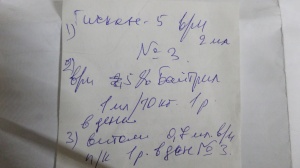 1) Тискан - 5 в/м
2 мл
№ 3.
2) в/м 2,5% Байтрил
1 мл/10 кг. 1 р
в день
3) Витам 0,7 мл. в/м
п/к 1 р. в день № 3